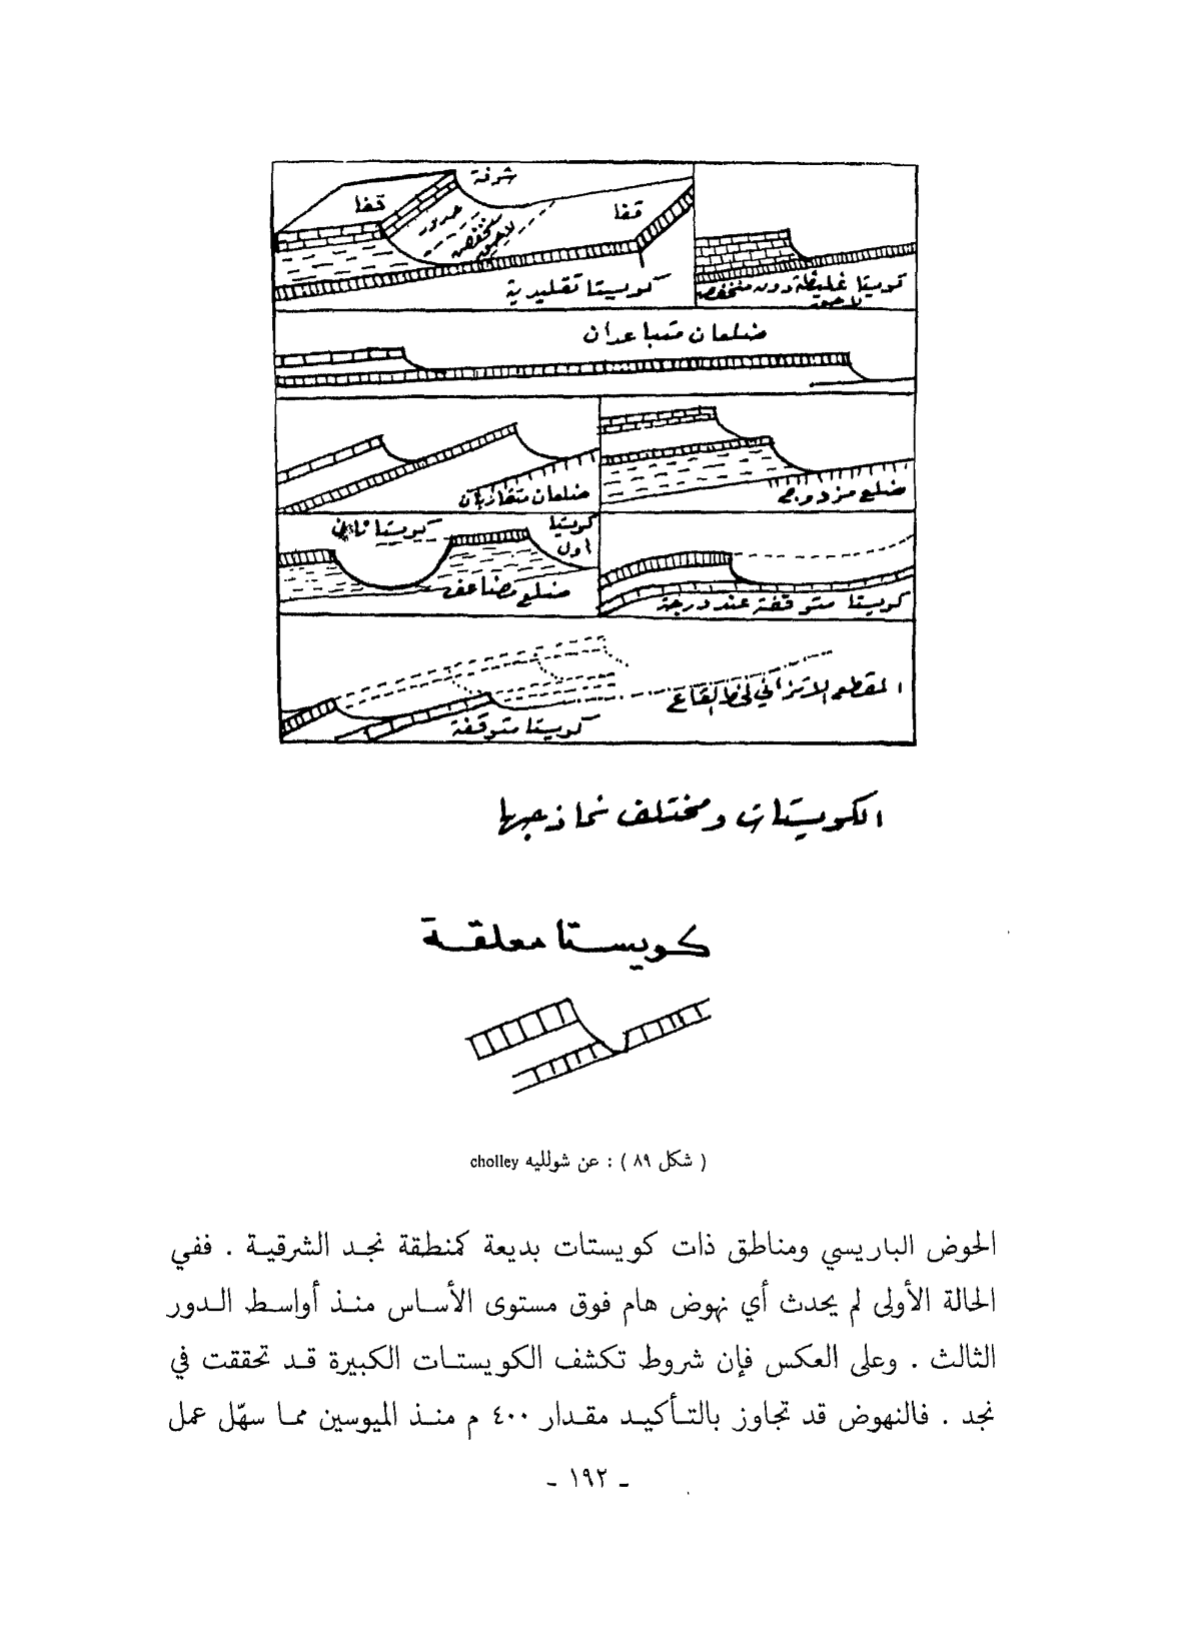 شرفة
قفا
حدور
منخفض
لاحق
قفا
كويستا تقليدية
كويستا غليظة دون منخفض
لاحق
ضلعان متباعدان
ضلعان متقاربان
ضلع مزدوج
كويستا ثاني
كويستا
أول
ضلع مضاعف
كويستا متوقفة عند درجة
المقطع الاتزاني لخط القاع
كويستا متوقفة
الكويستات ومختلف نماذجها
كويستا معلقة
( شكل ٨٩ ) : عن شولليه cholley
الحوض الباريسي ومناطق ذات كويستات بديعة كمنطقة نجد الشرقية . ففي
الحالة الأولى لم يحدث أي نهوض هام فوق مستوى الأساس منذ أواسط الدور
الثالث . وعلى العكس فإن شروط تكشف الكويستات الكبيرة قد تحققت في
نجد . فالنهوض قد تجاوز بالتأكيد مقدار ٤٠٠ م منذ الميوسين مما سهّل عمل
- ١٩٢ -